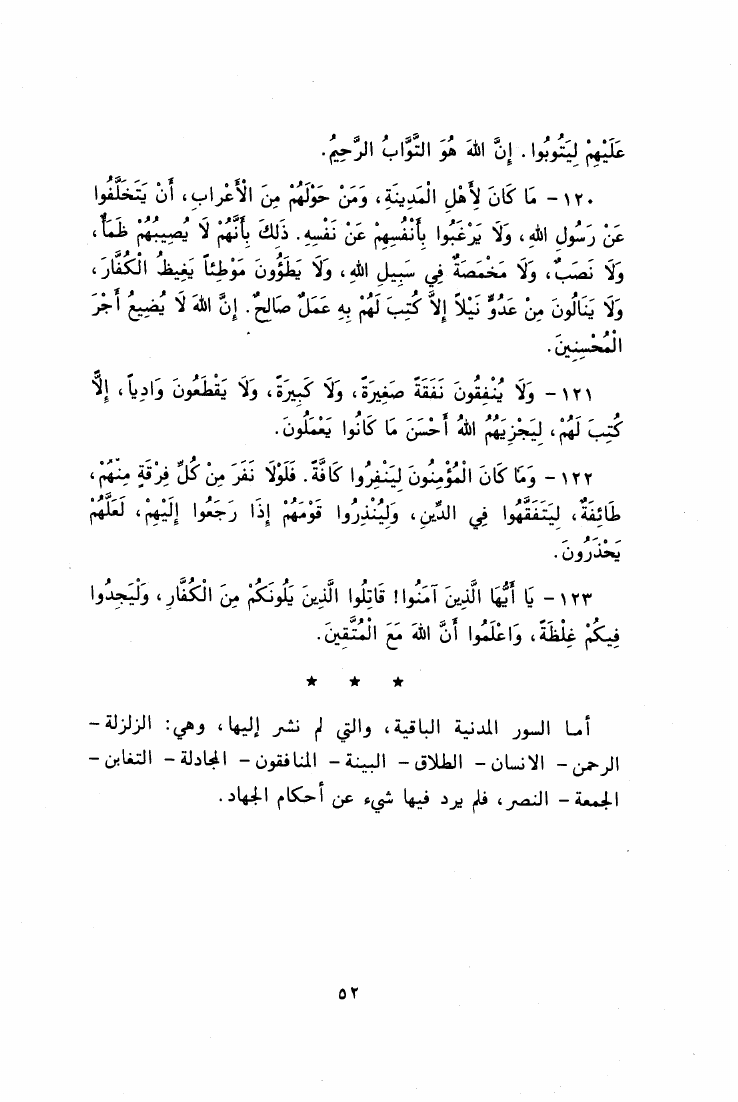 عَلَيْهِمْ لِيَتُوبُوا. إِنَّ اللهَ هُوَ التَّوَّابُ الرَّحِيمُ.
١٢٠ – مَا كَانَ لِأَهْلِ الْمَدِينَةِ، وَمَنْ حَوْلَهُمْ مِنَ الْأَعْرابِ، أَنْ يَتَخَلَّفُوا
عَنْ رَسُولِ اللهِ، وَلَا يَرْغَبُوا بِأَنْفُسِهِمْ عَنْ نَفْسِهِ. ذَلِكَ بِأَنَّهُمْ لَا يُصِيبُهُمْ ظَمَأٌ،
وَلَا نَصَبٌ، وَلَا مَخْمَصَةٌ فِي سَبِيلِ اللهِ، وَلَا يَطَؤُونَ مَوْطِئاً يَغِيظُ الْكُفَّارَ،
وَلَا يَنَالُونَ مِنْ عَدُوٍّ نَيْلاً إِلاَّ كُتِبَ لَهُمْ بِهِ عَمَلٌ صَالِحٌ. إِنَّ اللهَ لَا يُضِيعُ أَجْرَ
الْمُحْسِنِينَ.
١٢١ – وَلَا يُنْفِقُونَ نَفَقَةً صَغِيرَةً، وَلَا كَبِيرَةً، وَلَا يَقْطَعُونَ وَادِياً، إِلاَّ
كُتِبَ لَهُمْ، لِيَجْزِيَهُمُ اللهُ أَحْسَنَ مَا كَانُوا يَعْمَلُونَ.
١٢٢ – وَمَا كَانَ الْمُؤْمِنُونَ لِيَنْفِرُوا كَافَّةً. فَلَوْلَا نَفَرَ مِنْ كُلِّ فِرْقَةٍ مِنْهُمْ،
طَائِفَةٌ، لِيَتَفَقَّهُوا فِي الدِّينِ، وَلِيُنْذِرُوا قَوْمَهُمْ إِذَا رَجَعُوا إِلَيْهِمْ، لَعَلَّهُمْ
يَحْذَرُونَ.
١٢٣ – يَا أَيُّهَا الَّذِينَ آمَنُوا! قَاتِلُوا الَّذِينَ يَلُونَكُمْ مِنَ الْكُفَّارِ، وَلْيَجِدُوا
فِيكُمْ غِلْظَةً، وَاعْلَمُوا أَنَّ اللهَ مَعَ الْمُتَّقِينَ.
★ ★ ★
أما السور المدنية الباقية، والتي لم نشر إليها، وهي: الزلزلة –
الرحمن – الانسان – الطلاق – البينة – المنافقون – المجادلة – التغابن –
الجمعة – النصر، فلم يرد فيها شيء عن أحكام الجهاد.
٥٢